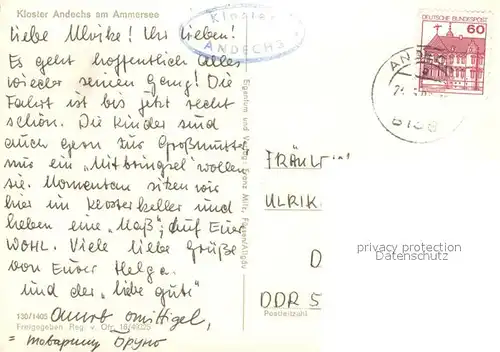 Kloster Andechs am Ammersee
Kloster
ANDECHS
DEUTSCHE BUNDESPOST
60
Liebe Ulrike! Ihr Lieben!
Es geht hoffentlich alles
wieder seinen Gang! Die
Fahrt ist bis jetzt recht
schön. Die Kinder sind
auch gern zur Großmutter
nur ein "Mitbringsel" wollen
sie. Momentan sitzen wir
hier im Klosterkeller und
heben eine "Maß", auf Euer
WOHL. Viele liebe Grüße
von Eurer Helga.
und der "liebe gute"
= товарищ Бруно
130/1405
Freigegeben Reg. v. Ofr.
Eigentum und Verlag: Franz Milz, Füssen/Allgäu
FRÄULEIN
ULRIK
D
DDR 5
Postleitzahl
privacy protection
Datenschutz